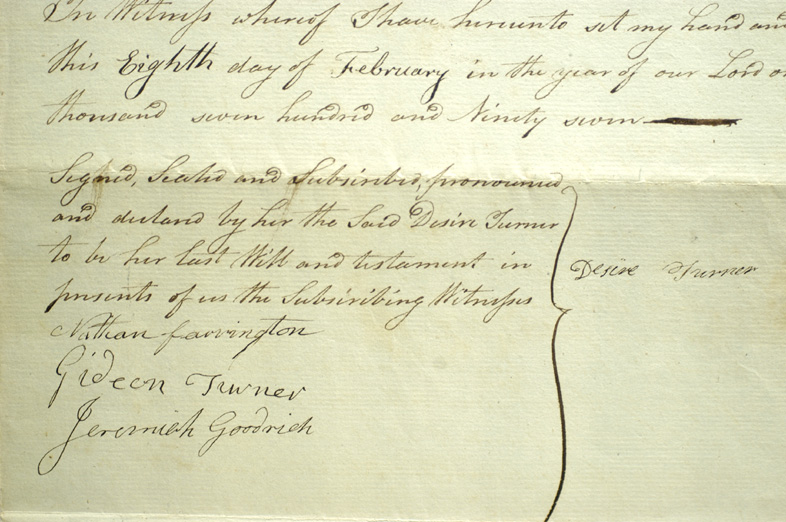 In Witness whereof I have hereunto set my hand and
this Eighth day of February in the year of our Lord
thousand seven hundred and Ninety seven
Signed, Sealed and Subscribed, pronounced
and declared by her the Said Desire Turner
to be her last Will and testament in
presents of us the Subscribing Witnesses
Desire Turner
Nathan Farrington
Gideon Turner
Jeremiah Goodrich